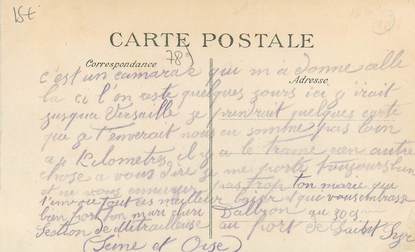 15t
CARTE POSTALE
785
Correspondance
Adresse
c'est un camarade qui m'a donne celle
la ci l'on reste quelques jours ici j'irait
jusqua Versaille je prendrait quelques carte
que je t'enverait nous en somme pas loin
a 4 kilometres il y a le trame rien autre
chose a vous dire je me porte toujours bien
et ne vous ennuyer pas trop ton marie qui
t'envoie tout ces meilleur baiser et qui vous embrasse
bien fort ton mari cheri
Section de Mitrailleuse au port de Saint Cyr
(Seine et Oise)